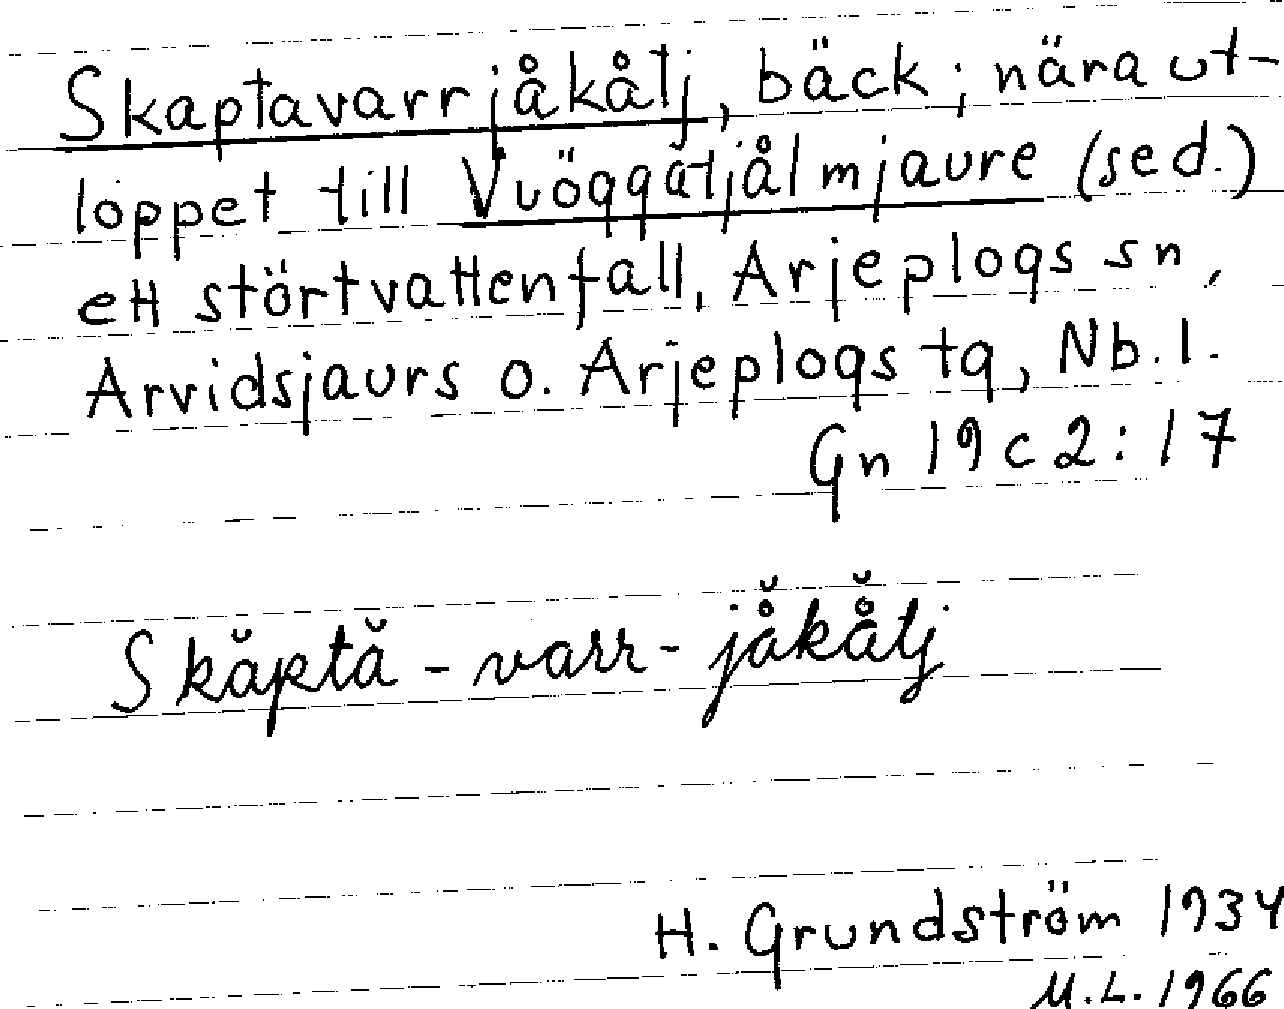 Skaptavarrjåkåtj, bäck; nära ut-
loppet till Vuöggatjålmjaure (sed.)
ett störtvattenfall, Arjeplogs sn,
Arvidsjaurs o. Arjeplogs tg, Nb. l.
Gn 19 c 2:17
Skăptă-varr-jå̆kå̆tj
H. Grundström 1934
M.L. 1966